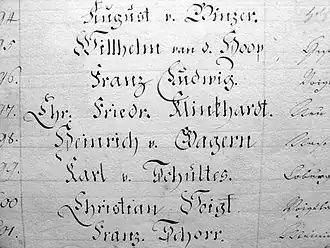 94 August v. Binzer.
95 Wilhelm van d. Hoop
96. Franz Ludwig.
97. Chr. Friedr. Klinkhardt.
98. Heinrich v. Gagern
99. Karl v. Schultes.
00 Christian Voigt
01. Franz Schorr.